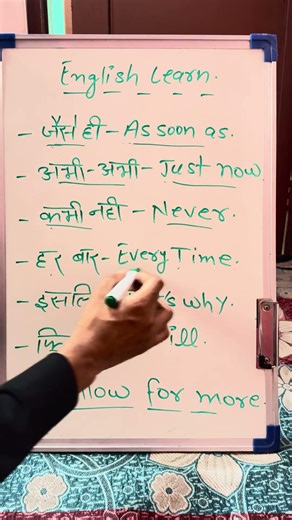 English Learn.
- जैसे ही - As soon as.
- अभी-अभी - Just now.
- कभी नही - Never.
- हर बार - Every Time.
- why.
-
for more.